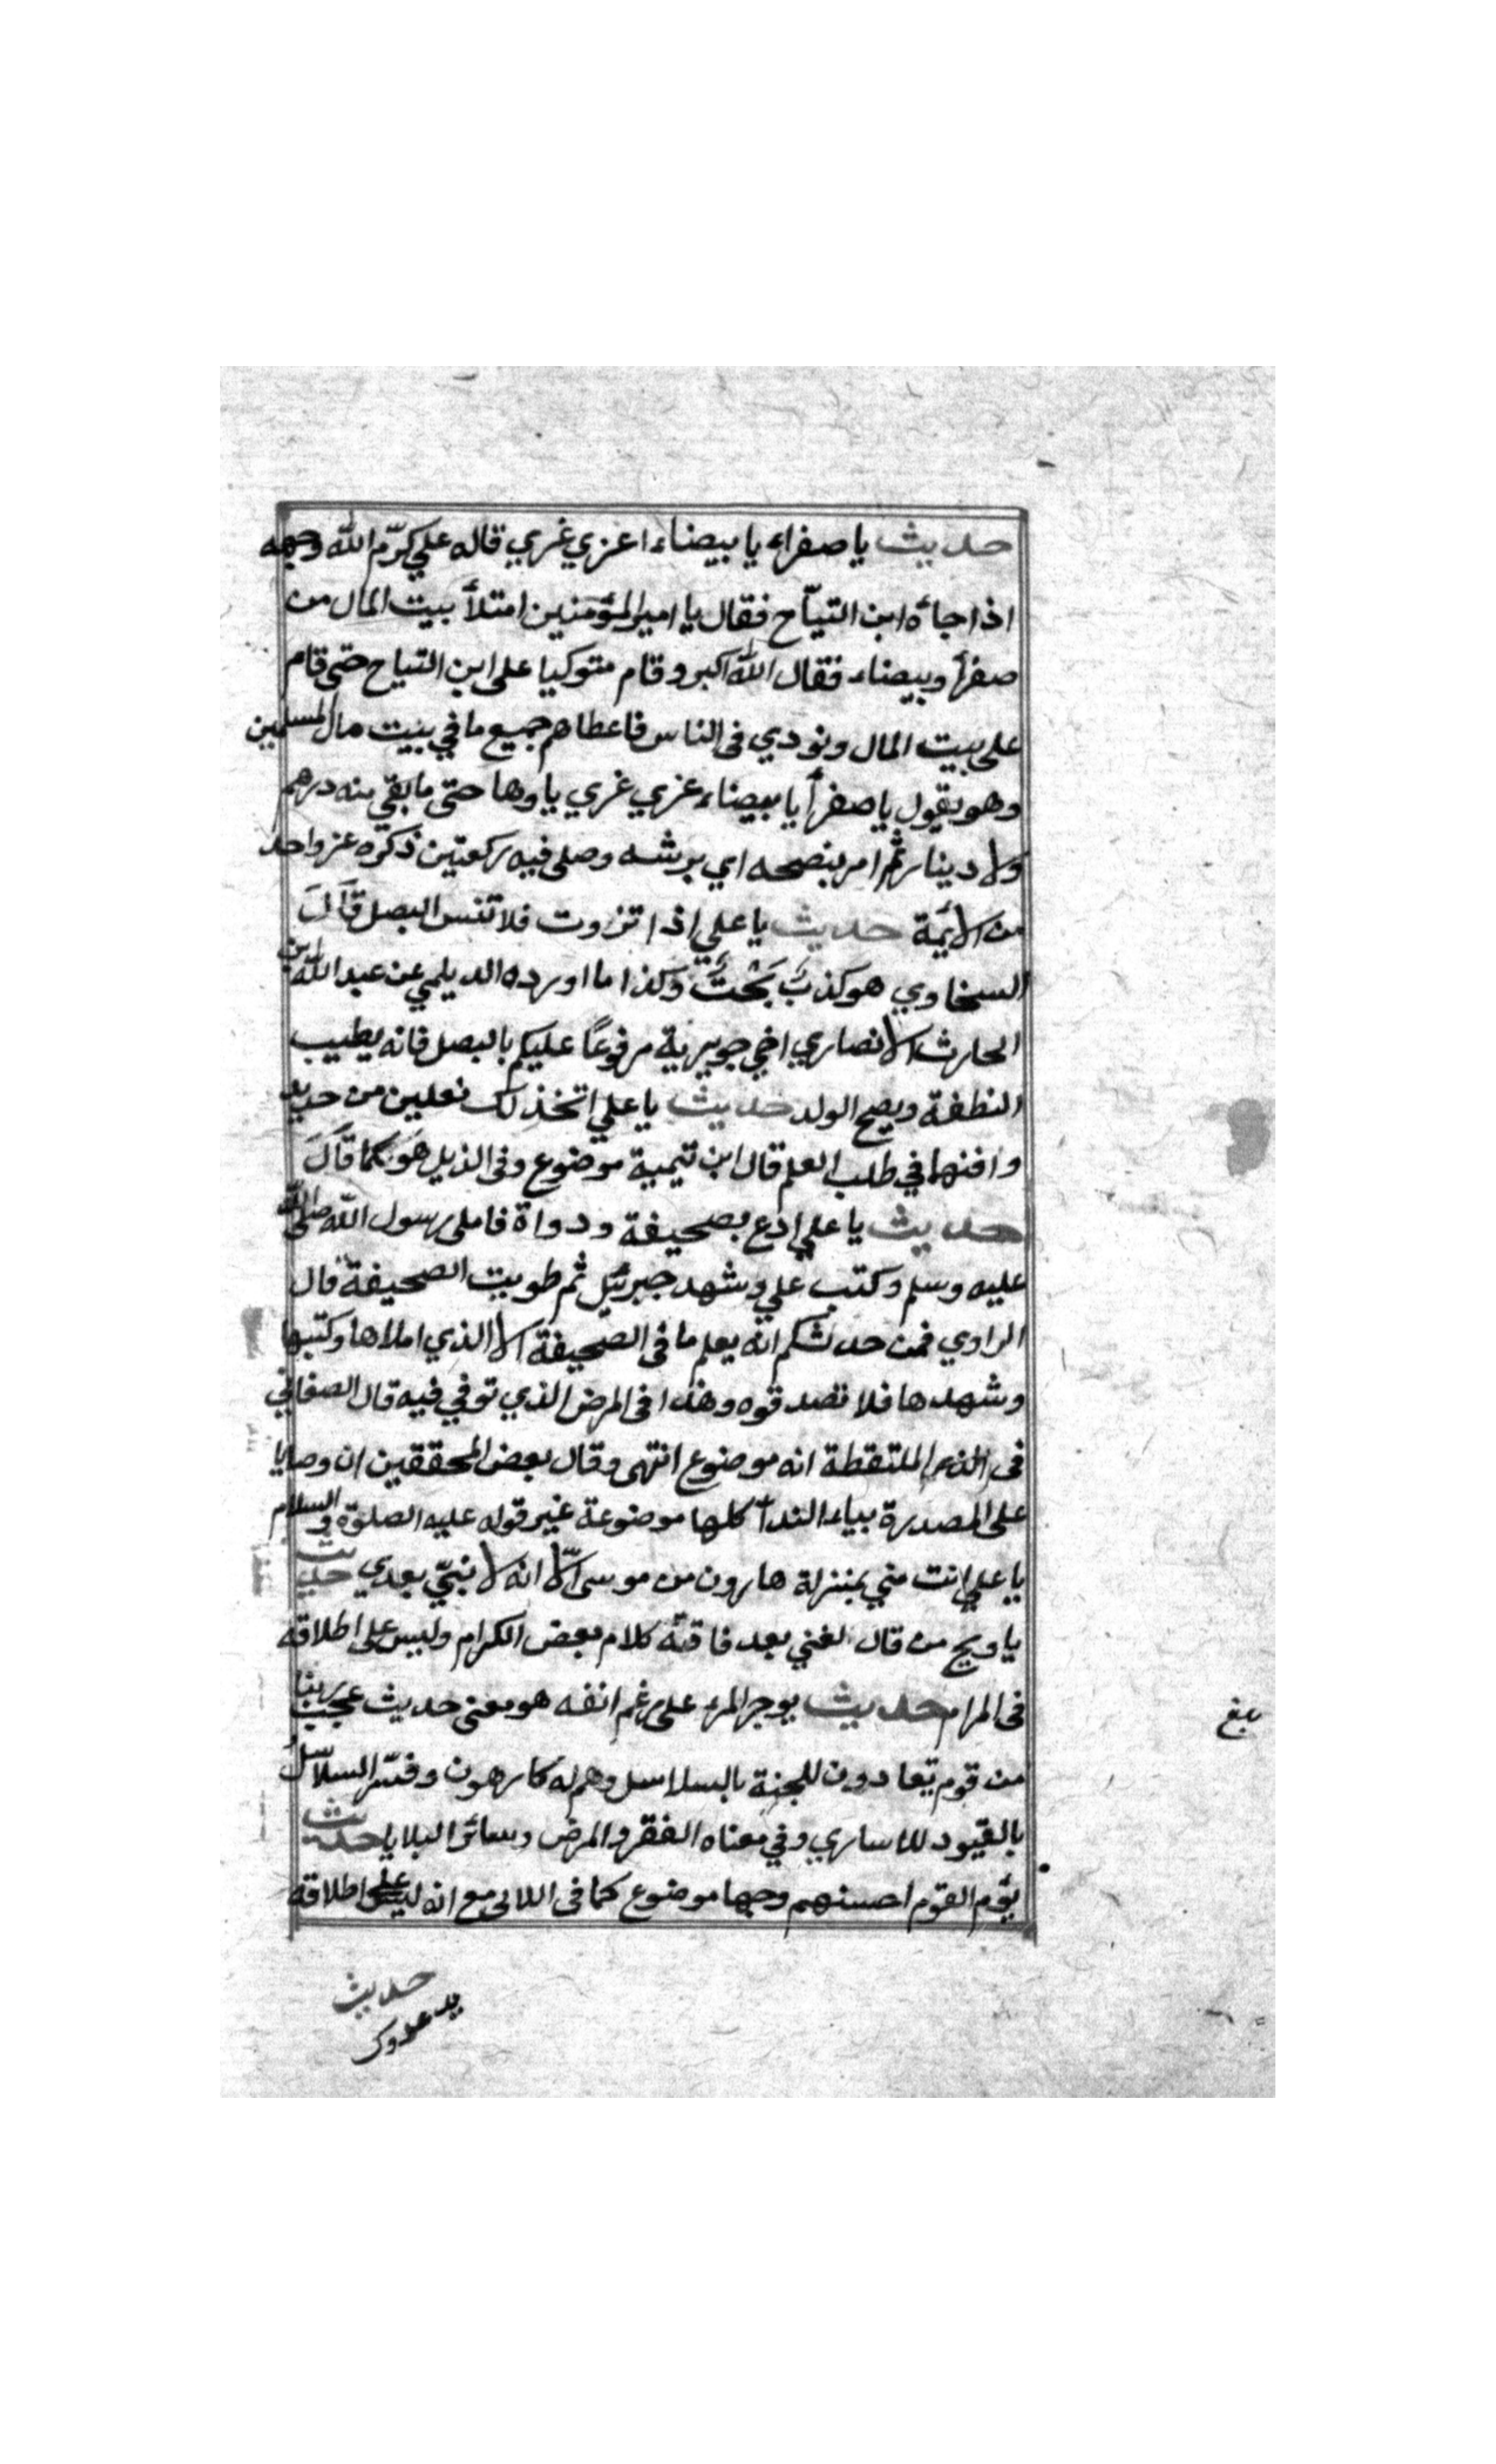 حديث يا صفراء يا بيضاء اعزي غري قاله علي كرّم الله وجهه
اذا جاءه ابن التياّح فقال يا امير المؤمنين امتلأ بيت المال من
صفرأ وبيضاء فقال الله اكبر وقام متوكيا على ابن التياح حتى قام
على بيت المال ونودي في الناس فاعطاهم جميع ما في بيت مال المسلمين
وهو يقول يا صفرأ يا بيضاء غري غري يا وها حتى ما بقي منه درهم
ولا دينار ثم امر بنضحه اي برشه وصلى فيه ركعتين ذكره غير واحد
من الأئمة حديث يا علي اذا تزوت فلا تنس البصل قال
السخاوي هو كذب بَحْت وكذا ما اورده الديلمي عن عبد الله بن
الحارث الانصاري اخي جويرية مرفوعًا عليكم بالبصل فانه يطيب
النطفة ويصح الولد حديث يا علي اتخذ لك نعلين من حديد
وافنهما في طلب العلم قال ابن تيمية موضوع وفي الذيل هو كما قال
حديث يا علي ادع بصحيفة ودواة فاملى رسول الله صلى الله
عليه وسلم وكتب علي وشهد جبرئيل ثم طويت الصحيفة قال
الراوي فمن حدثكم انه يعلم ما في الصحيفة الا الذي املاها وكتبها
وشهدها فلا تصدقوه وهذا في المرض الذي توفي فيه قال الصغاني
في الدر الملتقطة انه موضوع انتهى وقال بعض المحققين ان وصايا
على المصدرة بياء الندأ كلها موضوعة غير قوله عليه الصلوة والسلام
يا علي انت مني بمنزلة هارون من موسى الّا انه لا نبيّ بعدي حديث
يا ويح من قال لغني بعد فاقته كلام بعض الكرام وليس على اطلاقه
في المرام حديث يوجر المرء على رغم انفه هو معنى حديث عجب ربنا
من قوم يقادون للجنة بالسلاسل وهم له كارهون وفسّر السلاسل
بالقيود للاساري وفي معناه الفقر والمرض وسائر البلايا حديث
يؤم القوم احسنهم وجها موضوع كما في اللالي مع انه ليس على اطلاقه
حديث
يد عدوك
بلغ